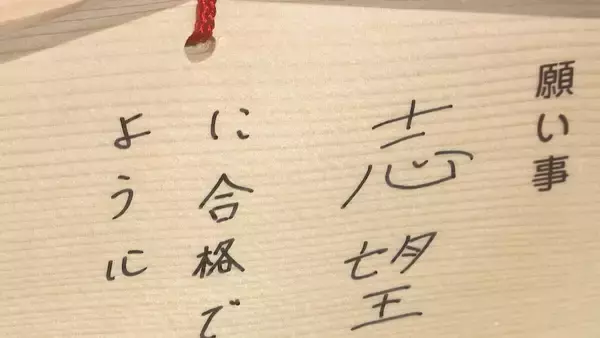 願い事
志望
に合格で
ように